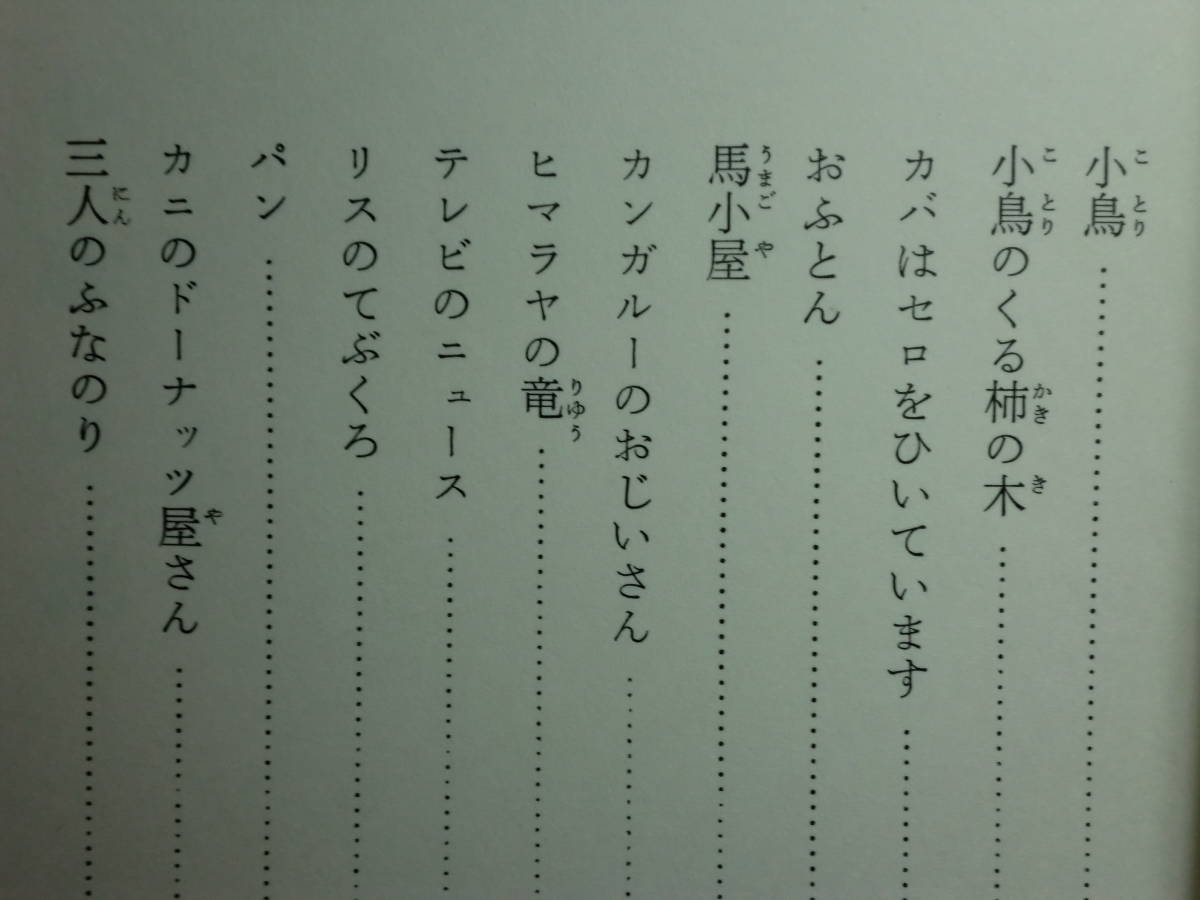 小鳥
小鳥のくる柿の木
カバはセロをひいています
おふとん
馬小屋
カンガルーのおじいさん
ヒマラヤの竜
テレビのニュース
リスのてぶくろ
パン
カニのドーナッツ屋さん
三人のふなのり